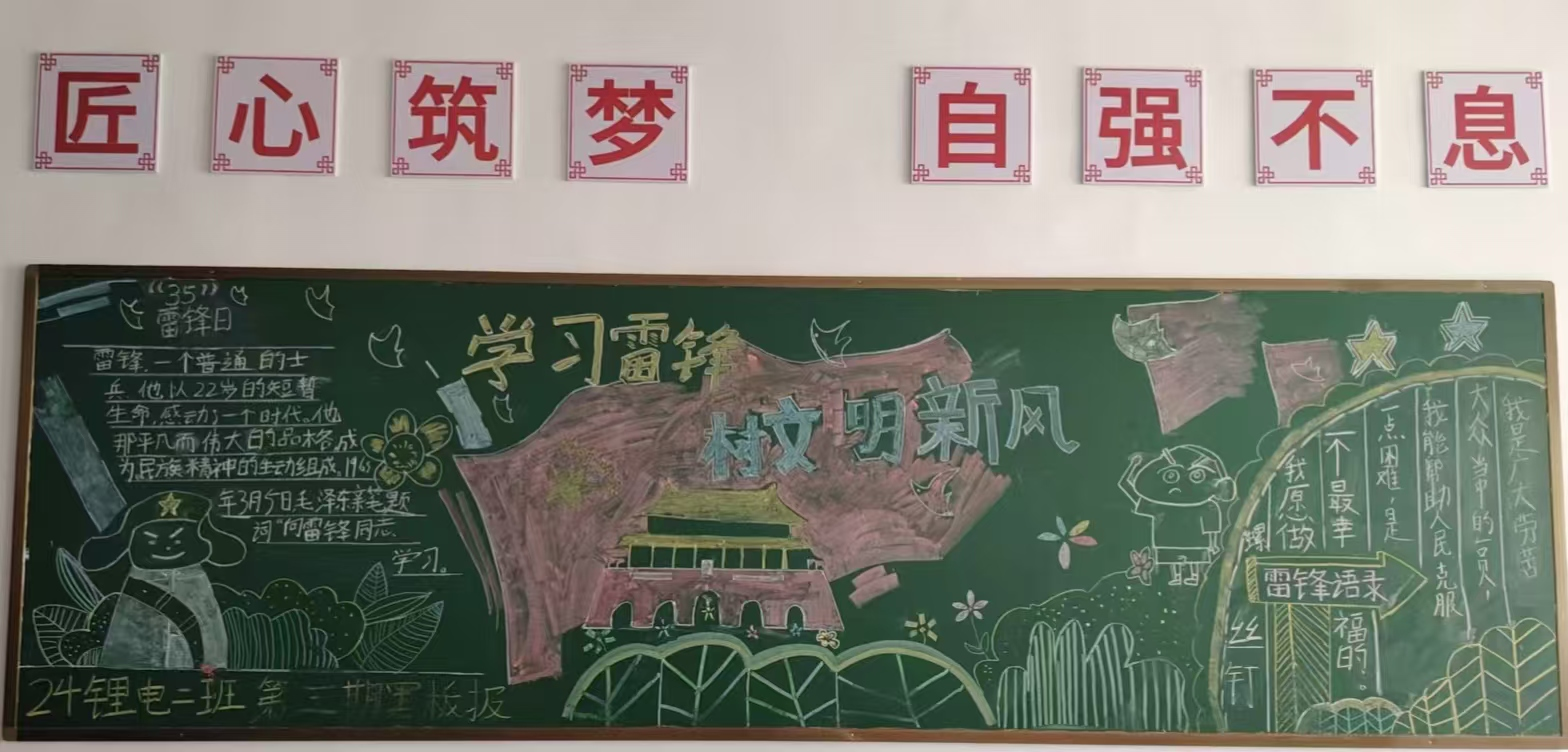 匠心筑梦 自强不息
“35”
雷锋日
雷锋.一个普通的士
兵.他以22岁的短暂
生命,感动了一个时代。他
那平凡而伟大的品格成
为民族精神的生动组成.1963
年3月5日毛泽东亲笔题
词“向雷锋同志
学习。
学习雷锋
树文明新风
我是广大劳苦
大众当中的一员,
我能帮助人民克服
一点困难,是
一个最幸
福的。
我愿做
螺
丝
钉
雷锋语录
24锂电二班 第二期黑板报